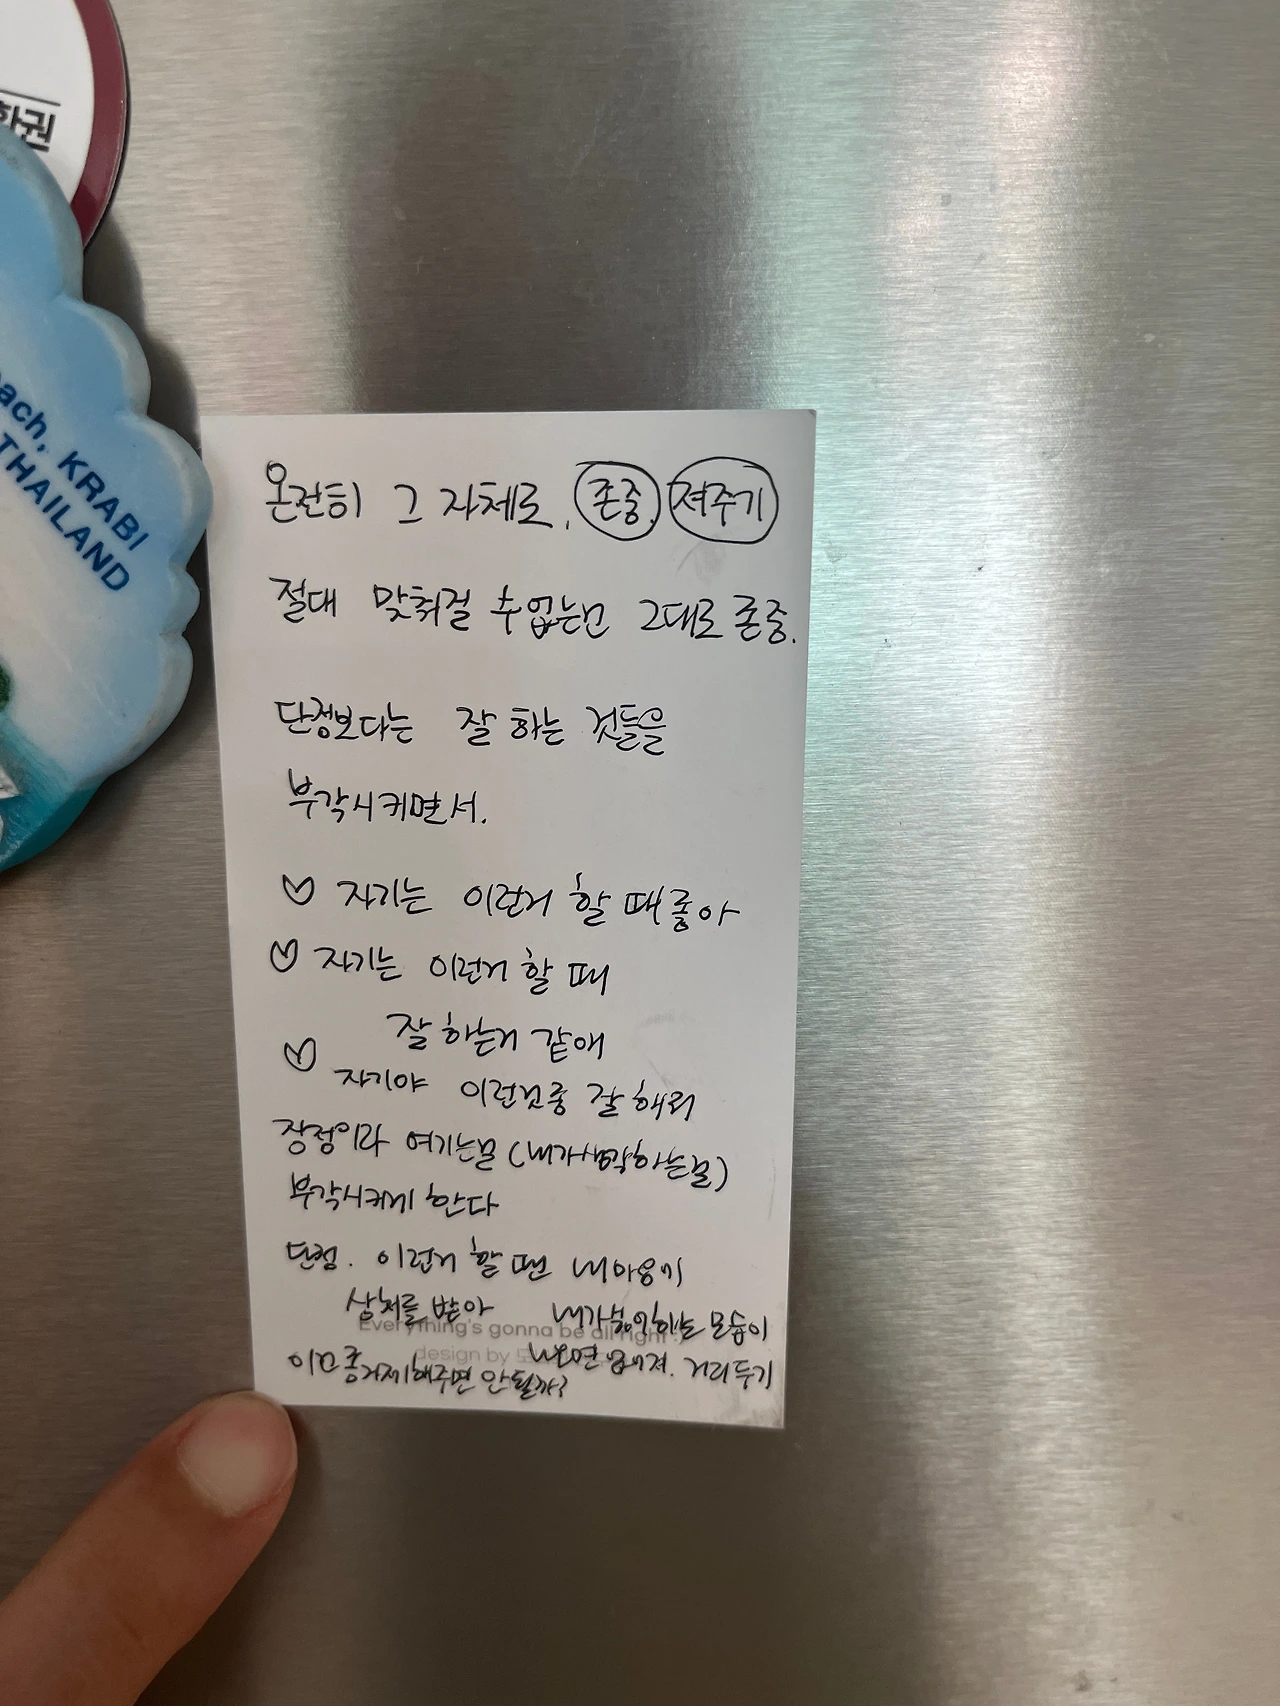 학권
ach, KRABI
THAILAND
온전히 그 자체로. 존중. 져주기
절대 맞춰질 수 없는건 그대로 존중.
단점보다는 잘 하는 것들을
부각시키면서.
♡ 자기는 이런거 할 때 좋아
♡ 자기는 이런거 할 때
잘 하는거 같애
♡
자기야 이런것좀 잘 해줘
장점이라 여기는걸 (내가 생각하는걸)
부각시키게 한다
단점. 이런거 할 땐 내 마음이
상처를 받아 내가 하는 모습이
Everything's gonna be all right :)
design by
이것 좀 자제해주면 안될까? 거리두기